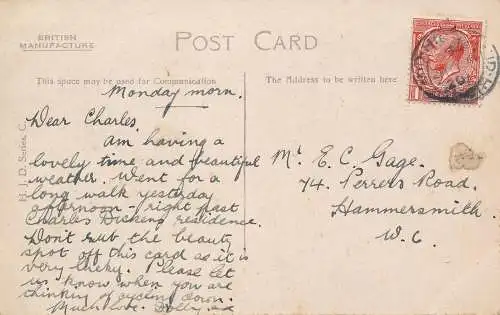 BRITISH
MANUFACTURE
POST CARD
This space may be used for Communication
The Address to be written here
H. J. D. Series, C.
Monday morn.
Dear Charles,
am having a
lovely time and beautiful
weather. Went for a
long walk yesterday
afternoon - right past
Charles Dickens residence.
Don't rub the beauty
spot off this card as it is
very lucky. Please let
us know when you are
thinking of cycling down.
Much love. Dolly. xx
Mr. E. C. Gage.
74. Perrers Road.
Hammersmith.
W. 6.